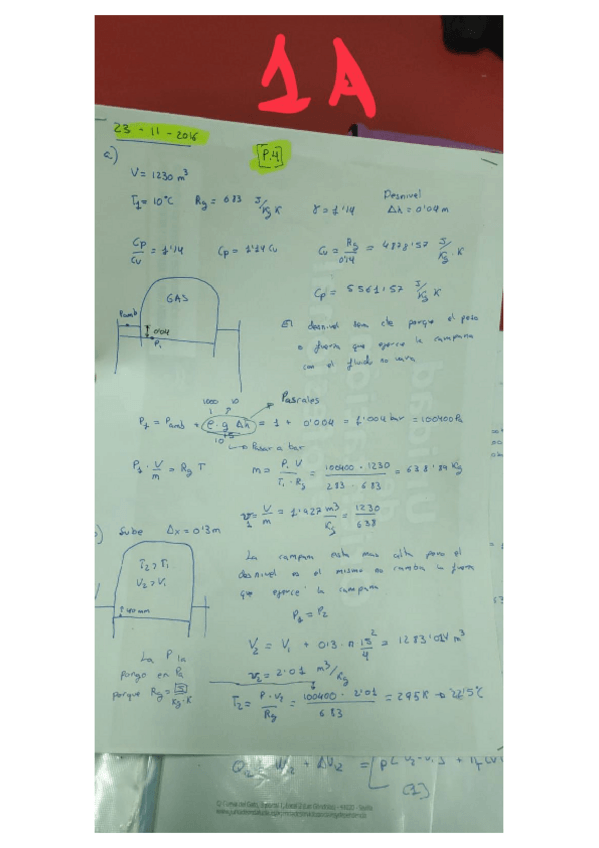 1A
23 - 11 - 2016
P.4
a)
V = 1230 m³
T₁ = 10°C   Rg = 683 J/Kg K   γ = 1'14   Desnivel Δh = 0'04 m
Cp/Cv = 1'14   Cp = 1'14 Cv   Cv = Rg/0'14 = 4878'57 J/Kg · K
Cp = 5561'57 J/Kg K
GAS
Pamb
0'04
P₁
El desnivel sera cte porque el peso
o fuerza que ejerce la campana
con el fluido no varia
1000   10
Pascales
P₁ = Pamb + ρ · g · Δh / 10⁵ = 1 + 0'004 = 1'004 bar = 100400 Pa
Pasar a bar
P₁ · V/m = Rg T   m = P₁ V / T₁ · Rg = 100400 · 1230 / 283 · 683 = 638'94 Kg
v₁ = V/m = 1'927 m³/Kg = 1230/638
Sube   Δx = 0'3 m
T₂ > T₁
V₂ > V₁
La campana esta mas alta pero el
desnivel es el mismo no cambia la fuerza
que ejerce la campana
P₁ = P₂
V₂ = V₁ + 0'3 · π 15²/4 = 1283'014 m³
v₂ = 2'01 m³/Kg
La P la
pongo en Pa
porque Rg = J/Kg·K
T₂ = P · v₂ / Rg = 100400 · 2'01 / 683 = 295K → 22'5°C